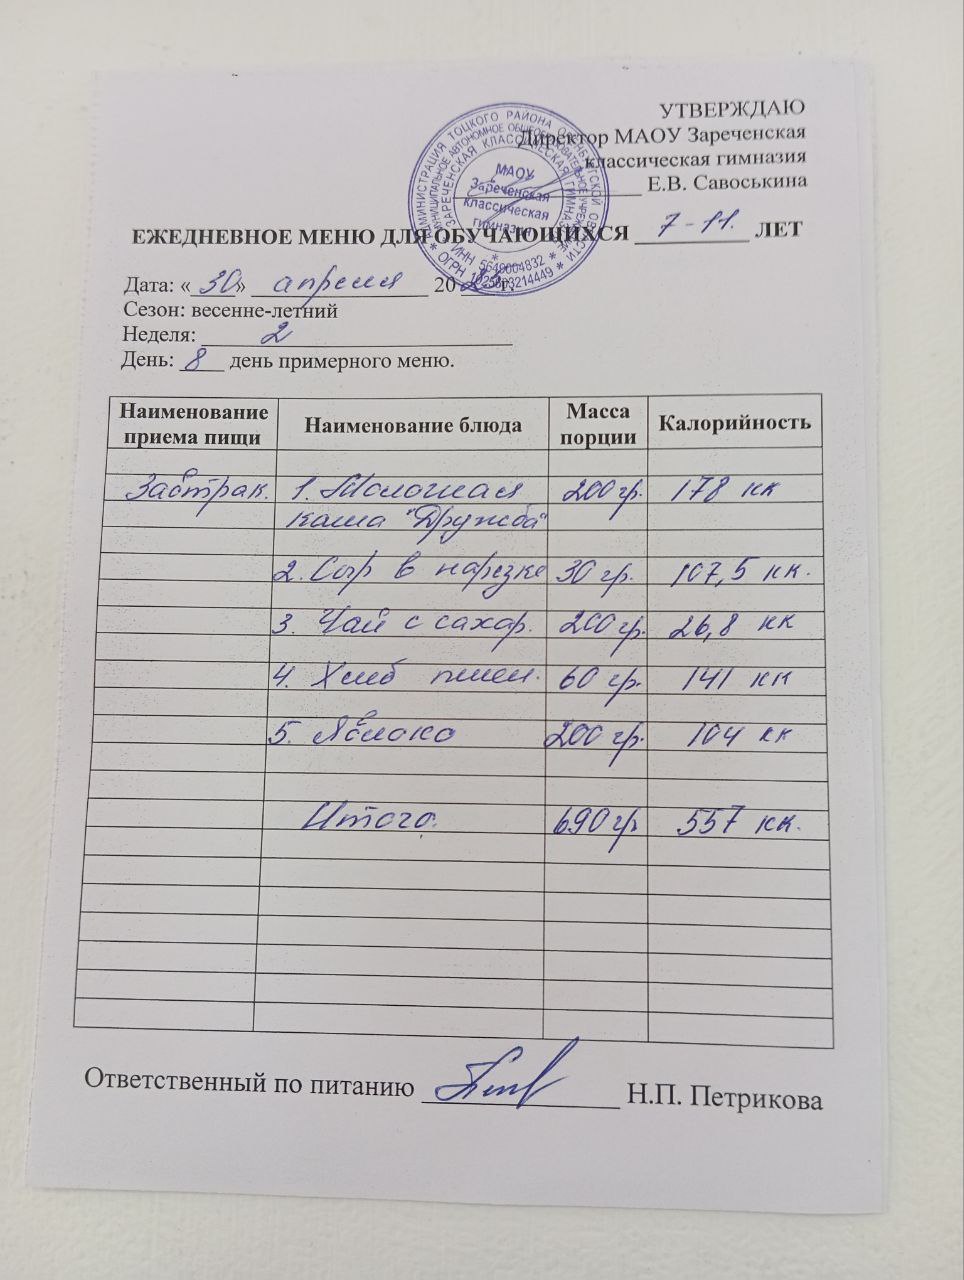 УТВЕРЖДАЮ
Директор МАОУ Зареченская
классическая гимназия
Е.В. Савоськина
АДМИНИСТРАЦИЯ ТОЦКОГО РАЙОНА ОРЕНБУРГСКОЙ ОБЛАСТИ
МУНИЦИПАЛЬНОЕ АВТОНОМНОЕ ОБЩЕОБРАЗОВАТЕЛЬНОЕ УЧРЕЖДЕНИЕ
ЗАРЕЧЕНСКАЯ КЛАССИЧЕСКАЯ ГИМНАЗИЯ
ИНН 5649004832
ОГРН
МАОУ
Зареченская
классическая
гимназия
ЕЖЕДНЕВНОЕ МЕНЮ ДЛЯ ОБУЧАЮЩИХСЯ 7-11. ЛЕТ
Дата: «30» апреля 20 г.
Сезон: весенне-летний
Неделя: 2
День: 8 день примерного меню.
Наименование приема пищи Наименование блюда Масса порции Калорийность
Завтрак. 1. Молочная 200 гр. 178 кк
каша "Дружба"
2. Сыр в нарезке 30 гр. 107,5 кк.
3. Чай с сахар. 200 гр. 26,8 кк
4. Хлеб пшен. 60 гр. 141 кк
5. Яблоко 200 гр. 104 кк
Итого. 690 гр 557 кк.
Ответственный по питанию Н.П. Петрикова